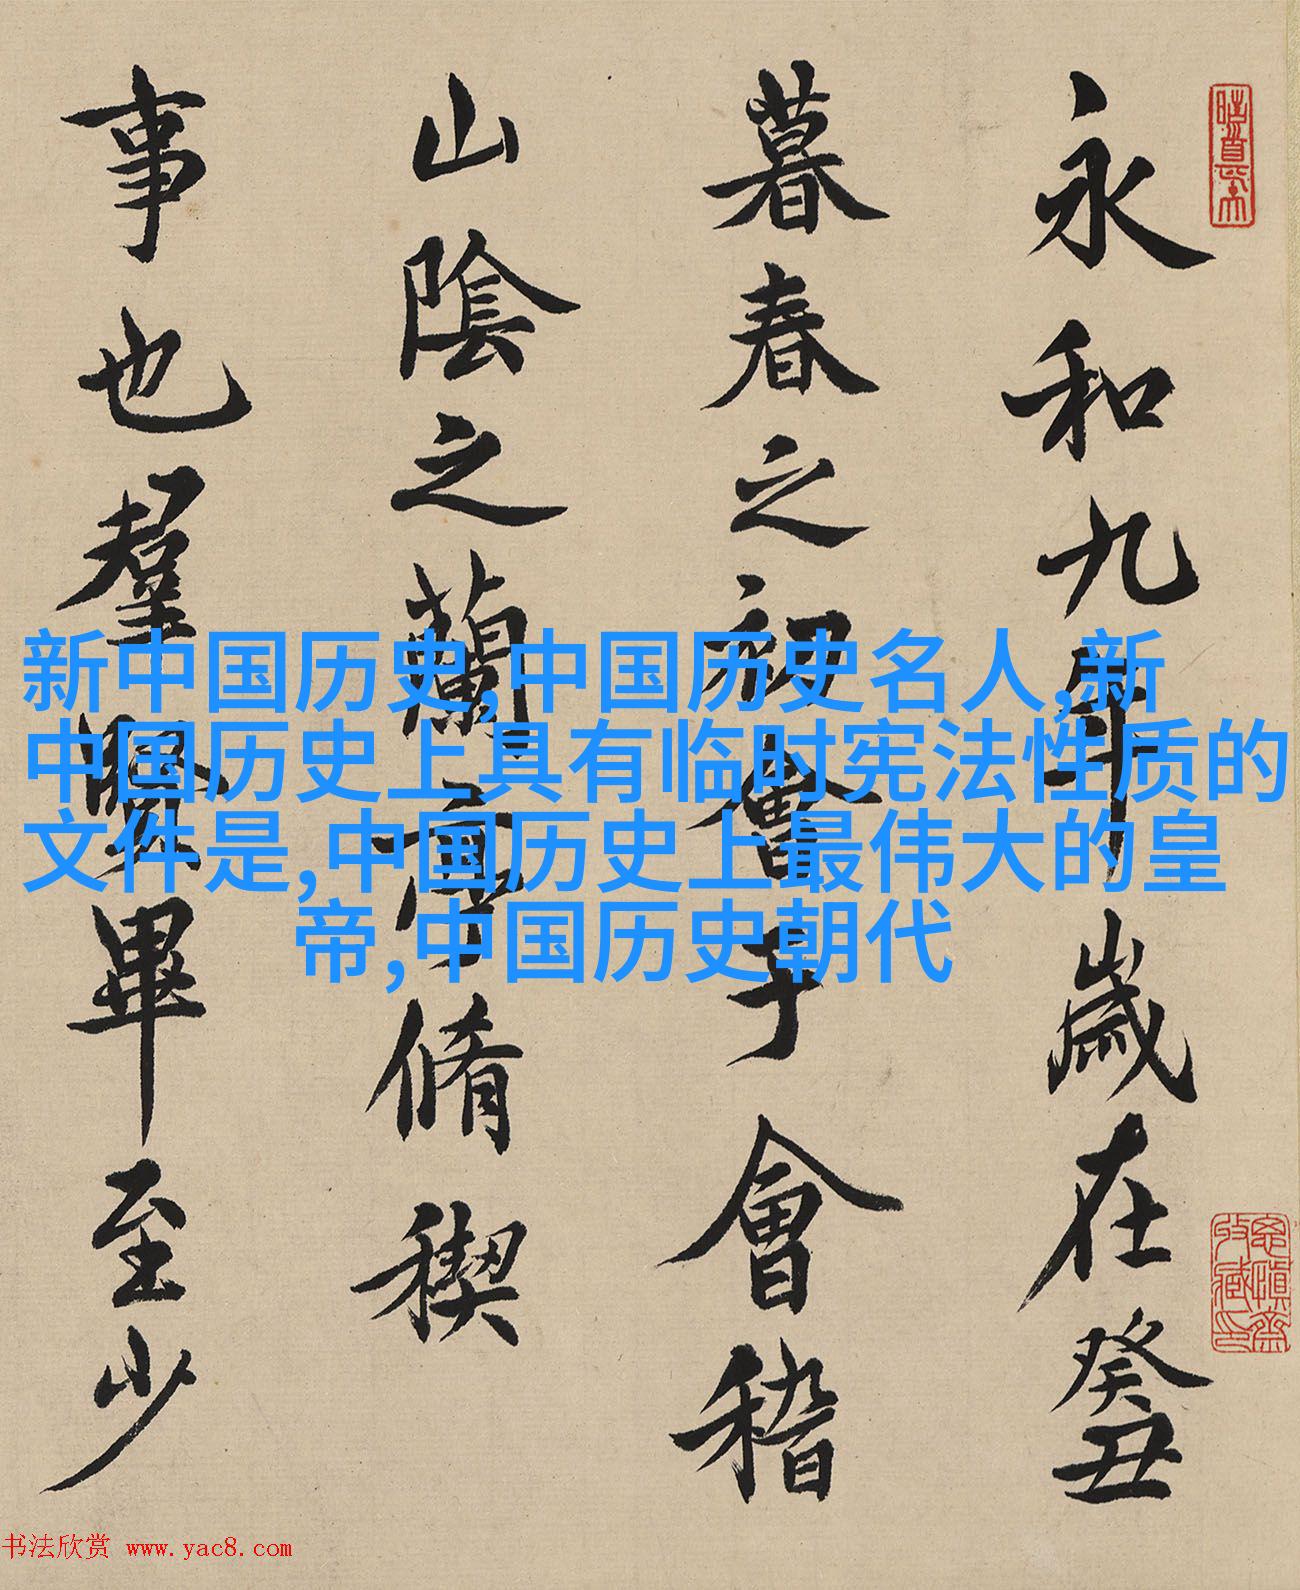 永和九年歲在癸丑
暮春之初會于會稽
山陰之蘭亭脩稧
事也羣賢畢至少
新中国历史,中国历史名人,新
中国历史上具有临时宪法性质的
文件是,中国历史上最伟大的皇
帝,中国历史朝代
书法欣赏 www.yac8.com